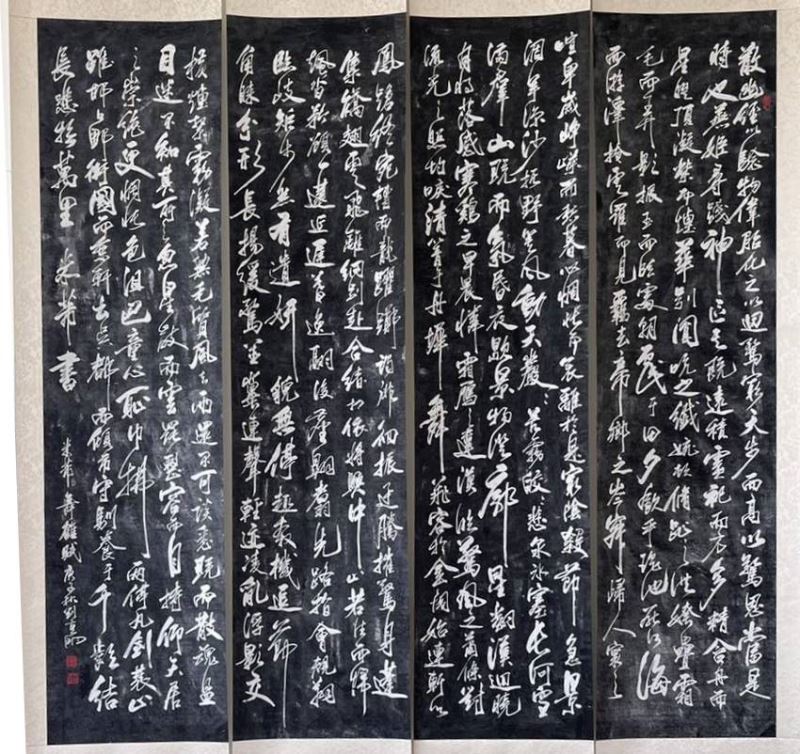 散幽經以驗物偉胎化之以迴騖窮天步而高以驚思當是
時也燕姬尋踐神區其既遠積靈祀而方多精含丹而
星曜頂凝紫而煙華引圓吭之纖婉頓修趾之洪姱疊霜
毛而弄影振玉而臨霞朝戲于田夕飲乎瑤池厭江海
而游澤掩雲羅而見羈去帝鄉之岑寂歸人寰之
喧卑歲崢嶸而愁暮心惆悵而哀離於是窮陰殺節急景
凋年涼沙振野箕風動天嚴嚴苦霧皎皎悲泉冰塞長河雪
滿羣山既而氛昏夜歇景物澄廓星翻漢迴曉
月將落感寒雞之早晨憐霜鴈之違漠臨驚風之蕭條對
流光之照灼唳清響于丹墀舞飛容於金閣始連軒以
鳳蹌終宛轉而龍躍躑躅徘徊振迅騰摧驚身蓬
集矯翅雪飛離綱別赴合緒相依將興中止若往而歸
颯沓矜顧遷延遲暮逸翮後塵翱翥先路指會規翔
臨岐矩步態有遺妍貌無停趣奔機逗節
角睞分形長揚緩騖並翼連聲輕迹凌亂浮影交
橫煙霧凝若無毛質風去雨還不可談悉既散魂而盪
目迷不知其所之忽星散而雲罷整容而自持仰天居
之崇絕更惆悵色沮巴童心恥巾拂兩停丸劍雙止
雖邯鄲衛國而乘軒出吳都而傾市守馴養于千齡結
長悲於萬里 米芾書
米芾舞鶴賦庚子秋刘